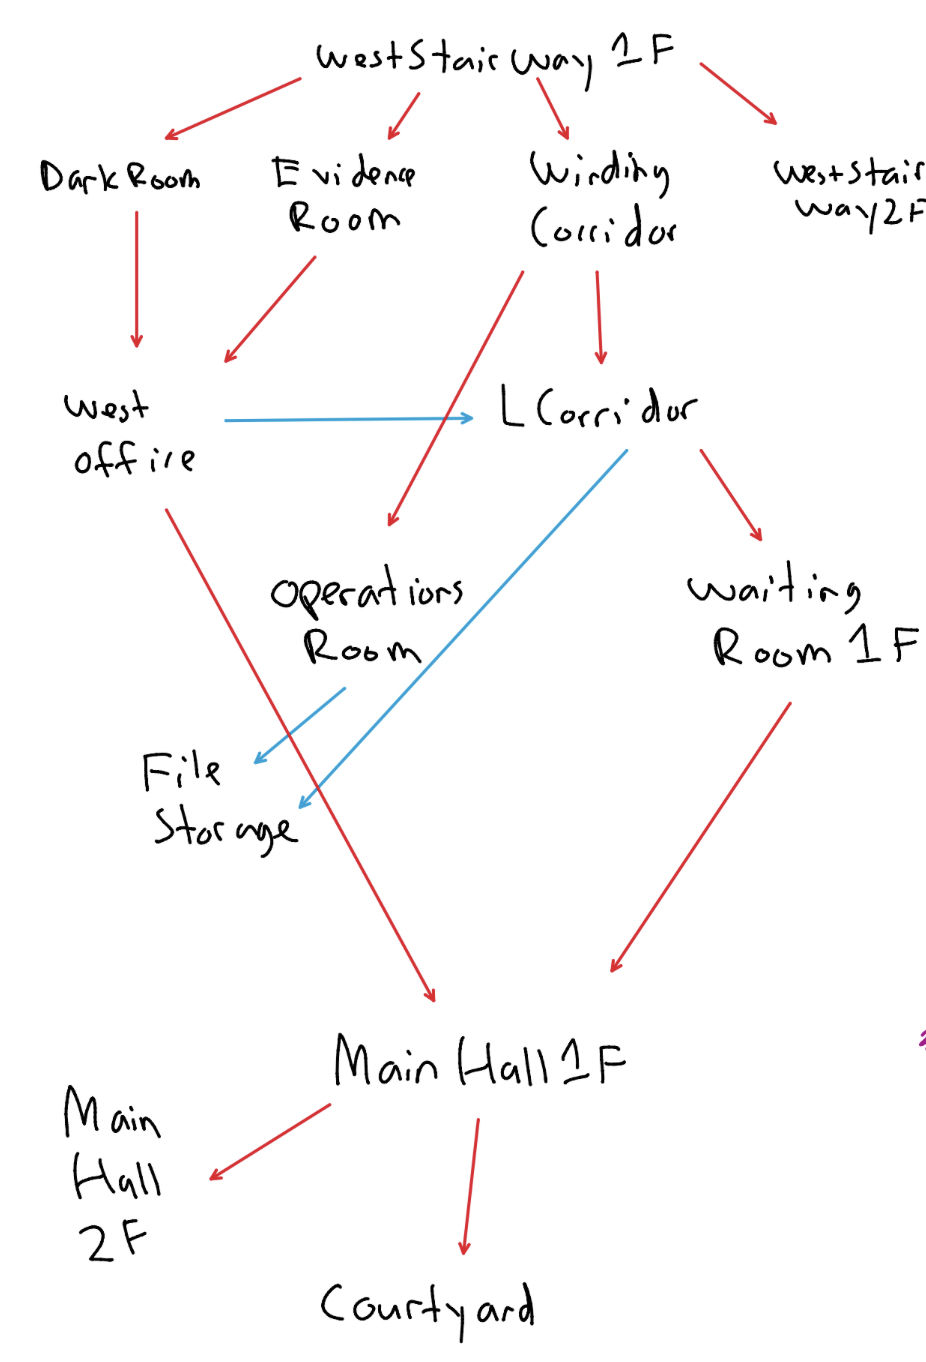 West Stairway 1F
Dark Room
Evidence
Room
Winding
Corridor
West Stair
way 2F
West
office
L Corridor
Operations
Room
Waiting
Room 1F
File
Storage
Main Hall 1F
Main
Hall
2F
Courtyard